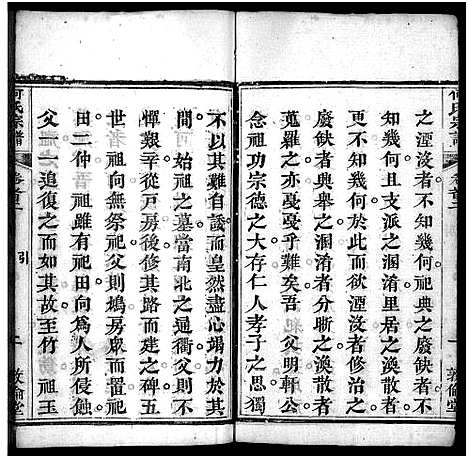 之湮沒者不知幾何祀典之廢缺者不
知幾何且支派之溷淆里居之渙散者
不知幾何於此而欲湮沒者修治之
廢缺者興舉之溷淆者分晰之渙散者
會萃之戛戛乎難矣吾父明軒公
念祖功宗德之大存仁人孝子之思獨
不以其難自諉而皇然盡心竭力於其
間 始祖之墓當南北之通衢父則不
憚艱辛從戶房後修其路而建之碑五
世 祖向無祭祀父則鳩房眾而置祀
田二仲 祖雖有祀田向為人所侵蝕
父一追復之而如其故至竹 祖玉
何氏宗譜
卷首二
引
一
敦倫堂
何氏宗譜
卷首二
敦倫堂